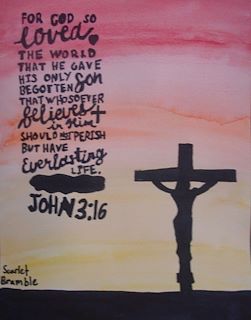 FOR GOD SO
loved
THE WORLD
THAT HE GAVE
HIS ONLY Son
BEGOTTEN
THAT WHOSOEVER
believes
in Him
SHOULD NOT PERISH
BUT HAVE
Everlasting
LIFE.
JOHN 3:16
Scarlet
Bramble